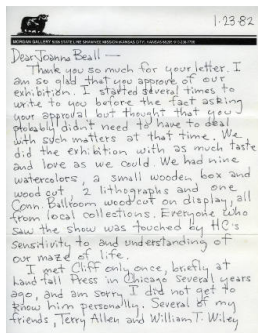 1-23-82
MORGAN GALLERY
Dear Joanna Beall —
Thank you so much for your letter. I
am so glad that you approve of our
exhibition. I started several times to
write to you before the fact asking
your approval but thought that you
probably didn't need to have to deal
with such matters at that time. We
did the exhibition with as much taste
and love as we could. We had nine
watercolors, a small wooden box and
wood cut, 2 lithographs and one
Conn. Ballroom woodcut on display, all
from local collections. Everyone who
saw the show was touched by HC's
sensitivity to and understanding of
our maze of life.
I met Cliff only once, briefly at
Landfall Press in Chicago several years
ago, and am sorry I did not get to
know him personally. Several of my
friends, Terry Allen and William T. Wiley